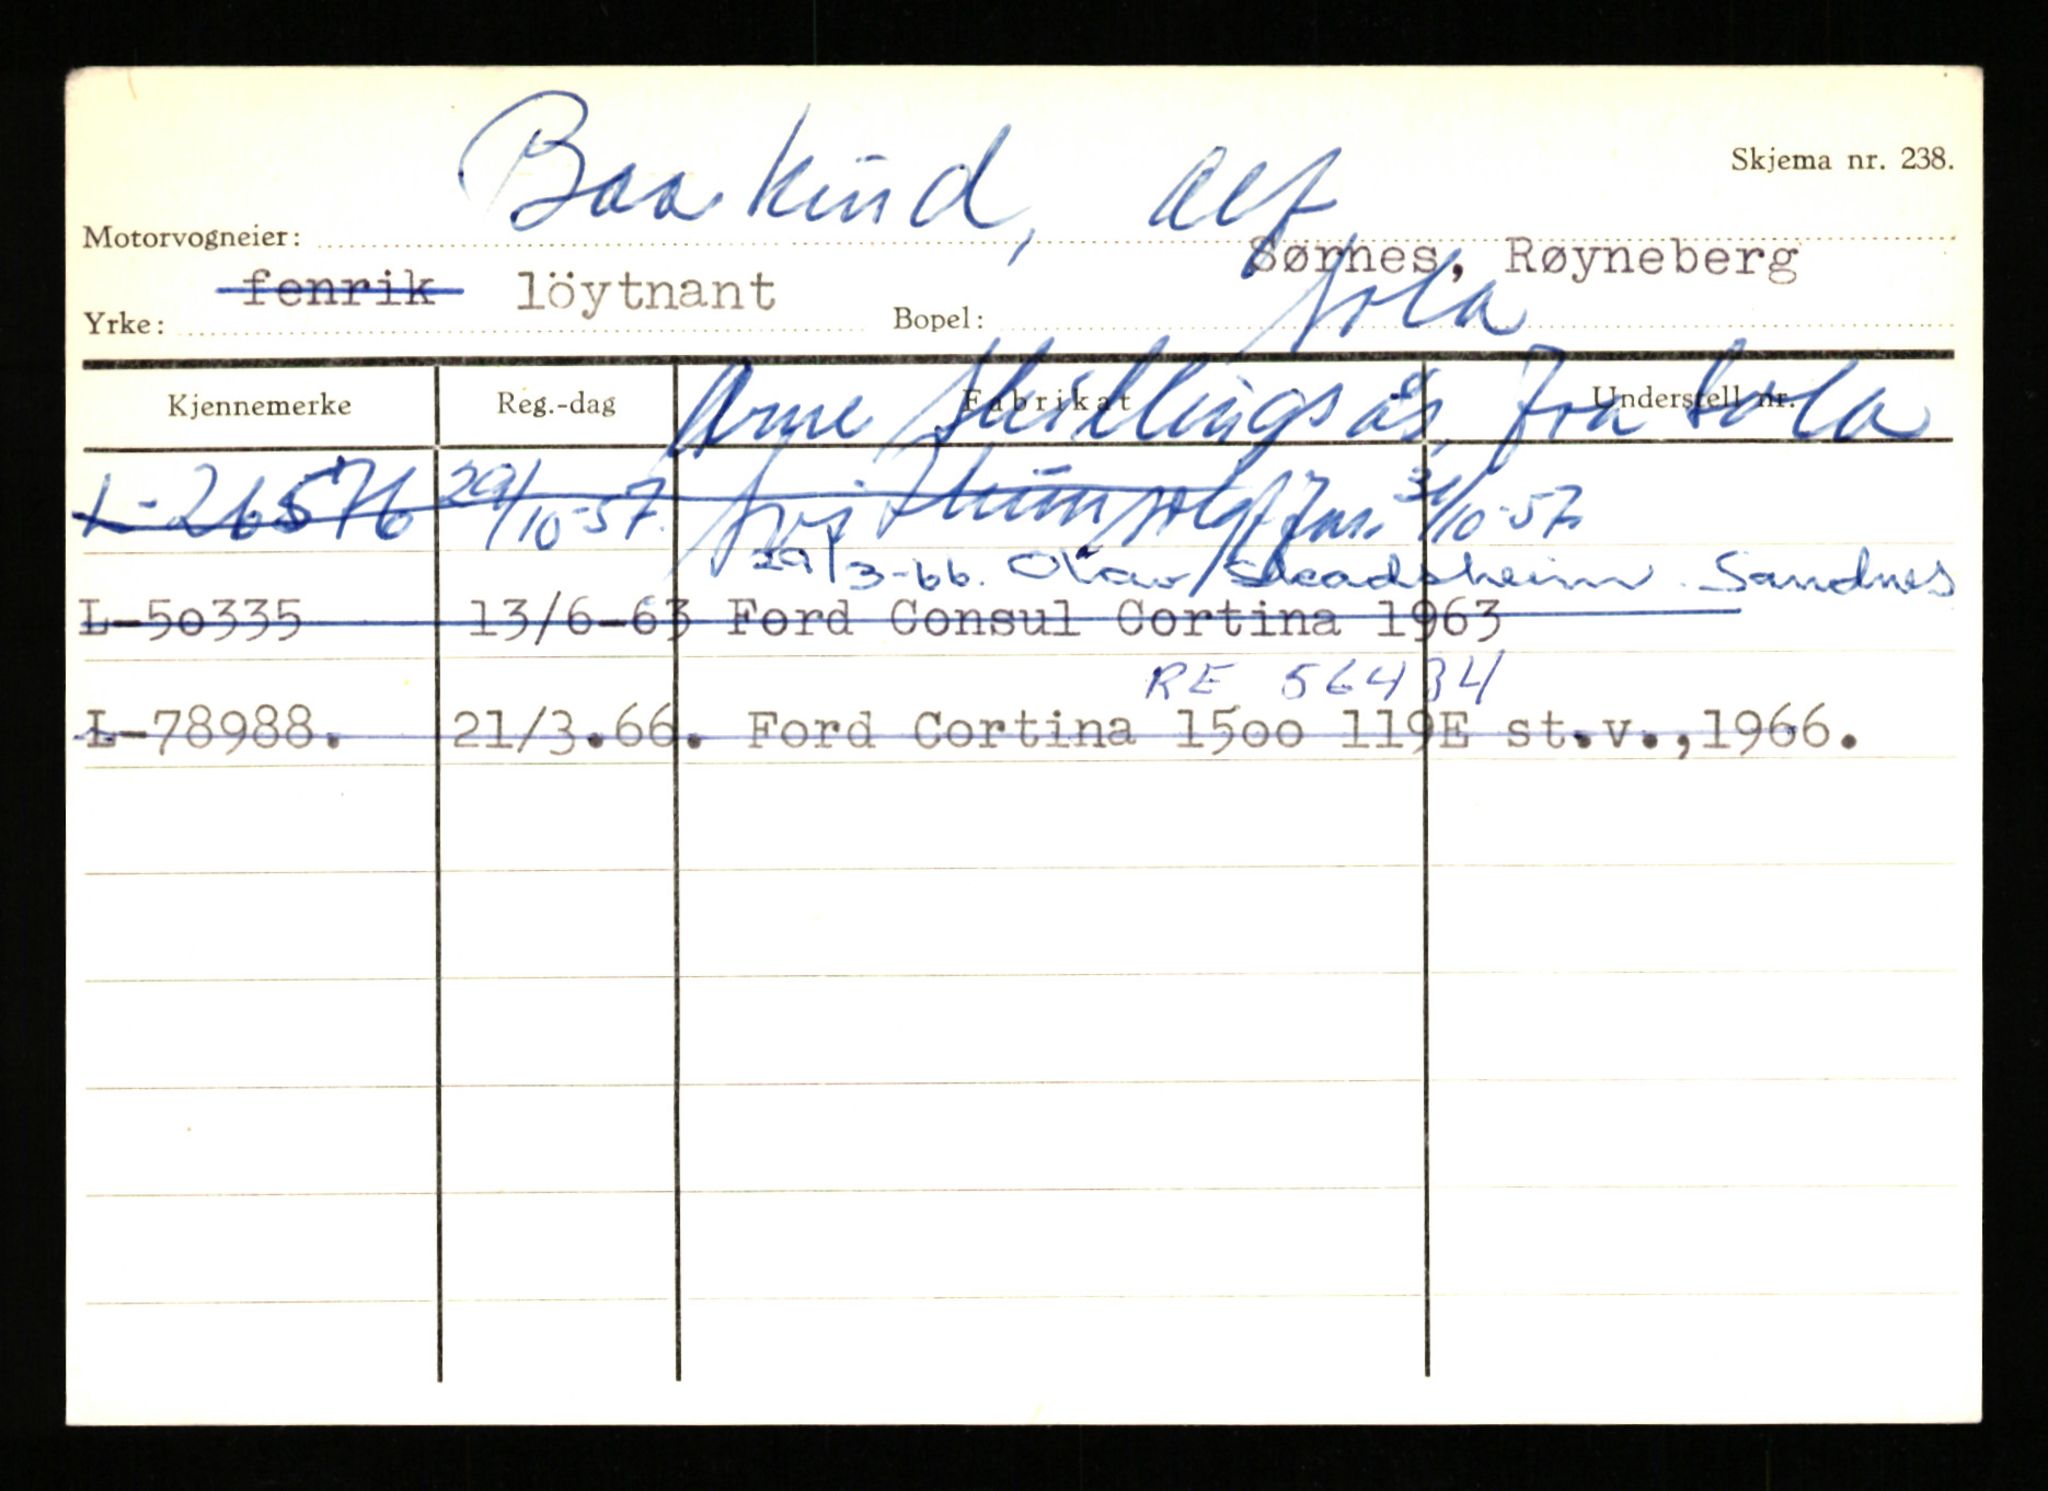 Skjema nr. 238.
Motorvogneier: Baakind, Alf
Sørnes, Røyneberg
Yrke: fenrik löytnant Bopel: Sola
Arne Skillingsås, fra Sola
Kjennemerke Reg.-dag Fabrikat Understell nr.
L-26576 29/10-57. 31/10-57
29/3-66. Olav Skadsheim. Sandnes
L-50335 13/6-63 Ford Consul Cortina 1963
RE 56434
L-78988. 21/3.66. Ford Cortina 1500 119E st.v.,1966.